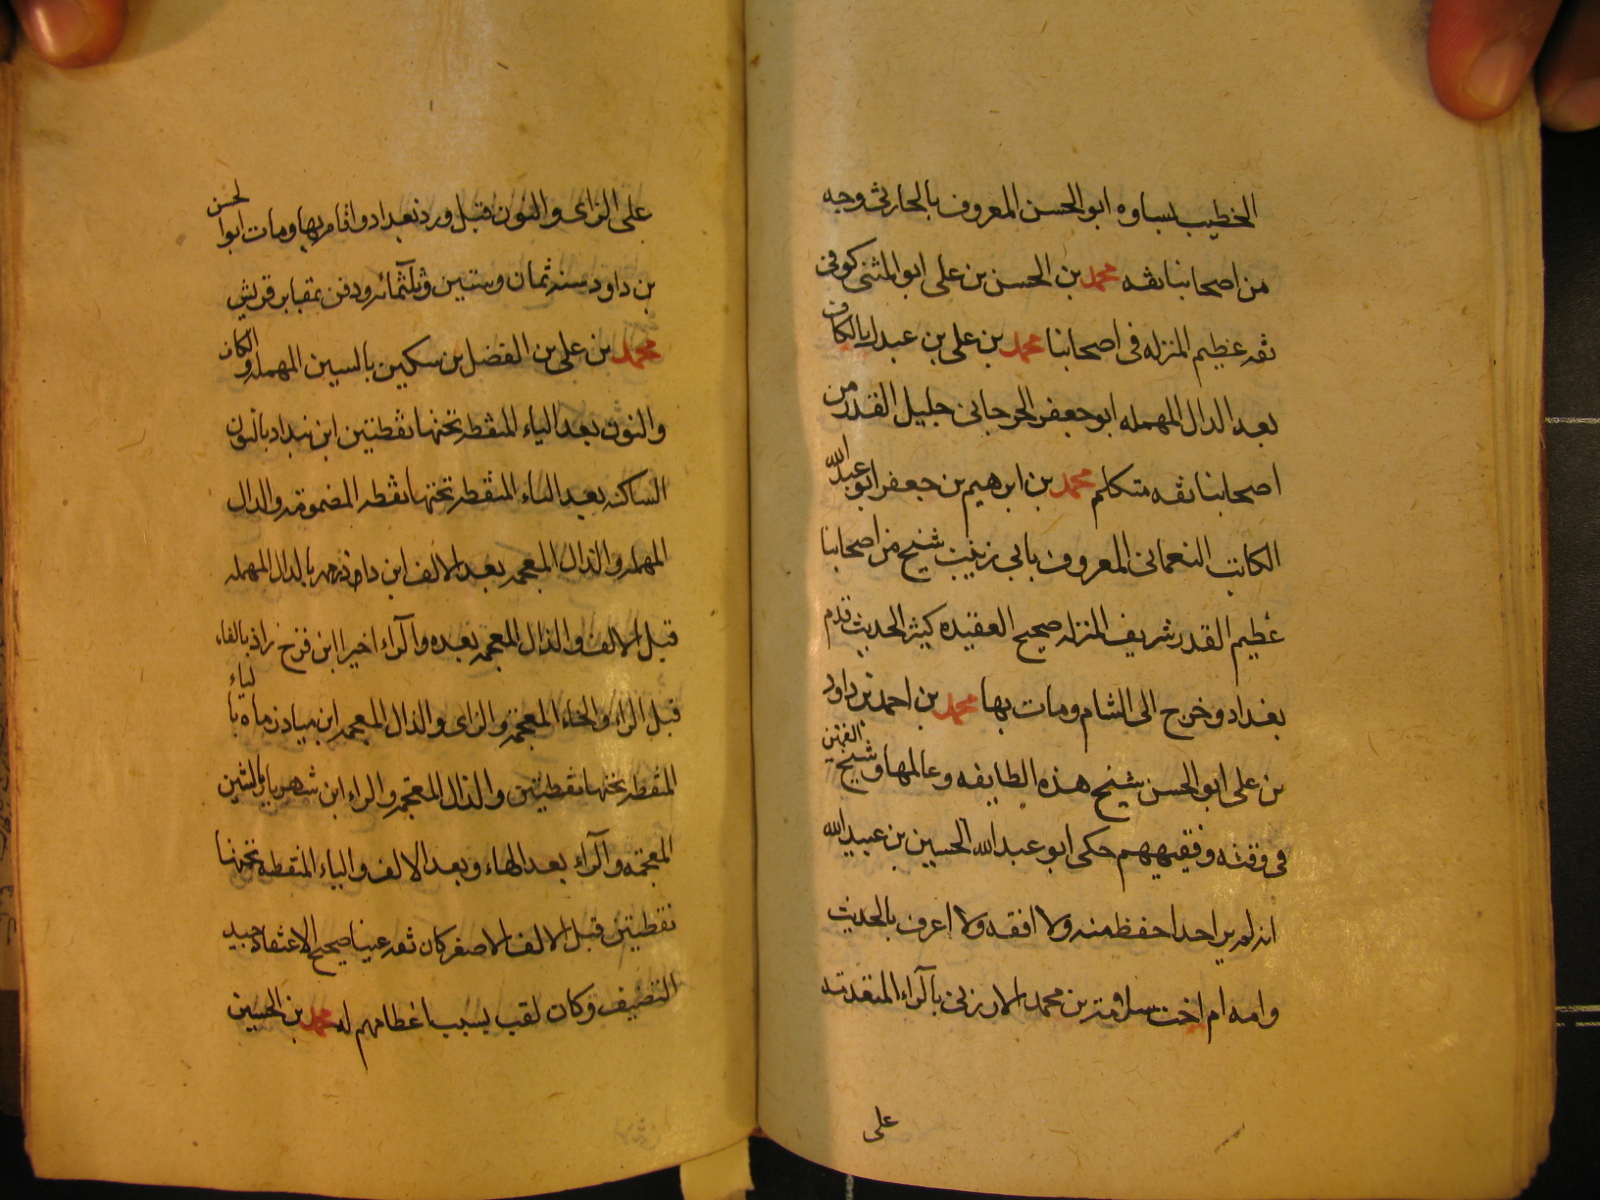 الخطيب بساوه ابو الحسن المعروف بالحارثى وجه
من اصحابنا ثقه محمد بن الحسن بن على ابو المثنى كوفى
ثقه عظيم المنزله فى اصحابنا محمد بن على بن عبدك بالكاف
بعد الدال المهمله ابو جعفر الجرجانى جليل القدر من
اصحابنا ثقه متكلم محمد بن ابرهيم بن جعفر ابو عبد الله
الكاتب النعمانى المعروف بابى زينب شيخ من اصحابنا
عظيم القدر شريف المنزله صحيح العقيده كثير الحديث قدم
بغداد وخرج الى الشام ومات بها محمد بن احمد بن داود
بن على ابو الحسن شيخ هذه الطايفه وعالمها وشيخ القميين
فى وقته وفقيههم حكى ابو عبد الله الحسين بن عبيد الله
انه لم ير احدا احفظ منه ولا افقه ولا اعرف بالحديث
وامه ام اخت سلامة بن محمد الارزنى بالراء المتقدمة
على
على الزاى والنون قبل ورد بغداد واقام بها ومات ابو الحسن
بن داود سنه ثمان وستين وثلثمائه ودفن بمقابر قريش
محمد بن على بن الفضل بن سكين بالسين المهمله والكاف
والنون بعد الياء المنقطه تحتها نقطتين ابن بنداد بالنون
الساكنه بعد الباء المنقطه تحتها نقطه المضمومه والدال
المهمله والذال المعجمه بعد الالف ابن داذرمهر بالدال المهمله
قبل الالف والذال المعجمه بعده والراء اخيرا ابن فرخ زاذ بالفاء
قبل الراء والخاء المعجمه والزاى والذال المعجمه ابن مياذرماه بالياء
المنقطه تحتها نقطتين والذال المعجمه والراء ابن شهريار بالشين
المعجمه والراء بعد الهاء وبعد الالف والياء المنقطه تحتها
نقطتين قبل الالف الاصغر كان ثقه عينا صحيح الاعتقاد جيد
التصنيف وكان لقب بسبب اعظامهم له محمد بن الحسين